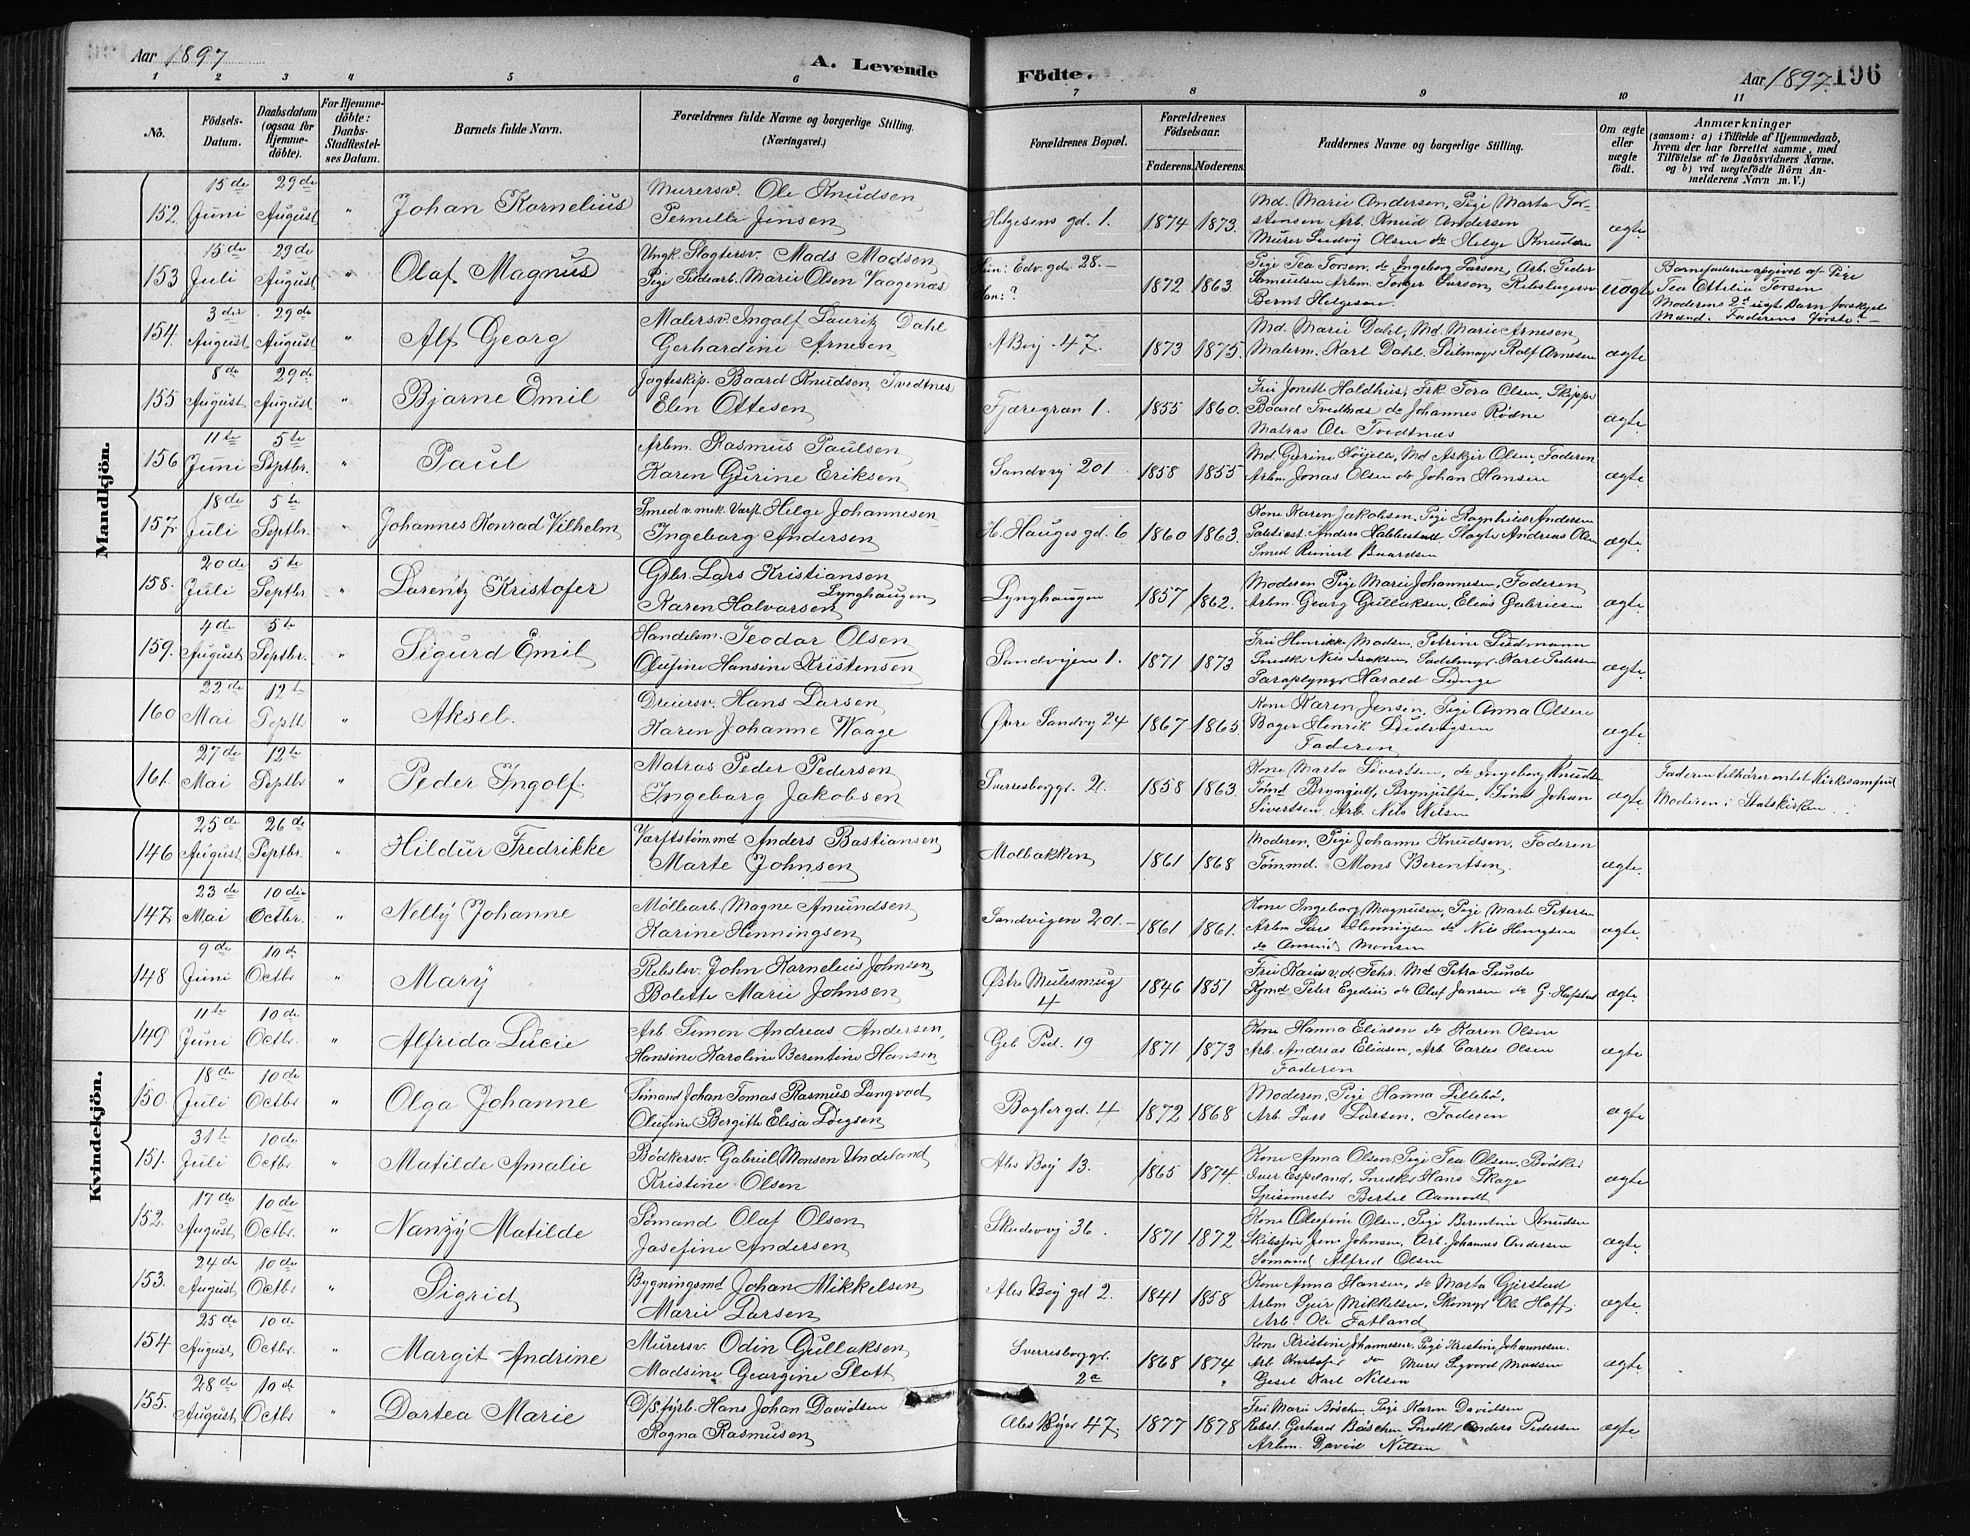 Aar 1897
A. Levende
Födte.
Aar 1897. 196
1 2 3 4 5 6 7 8 9 10 11
No.
Födsels-Datum.
Daabsdatum (ogsaa for Hjemmedöbte).
For Hjemmedöbte: Daabs-Stadfæstelses Datum.
Barnets fulde Navn.
Forældrenes fulde Navne og borgerlige Stilling. (Næringsvei.)
Forældrenes Bopæl.
Forældrenes Födselsaar.
Faderens. Moderens.
Faddernes Navne og borgerlige Stilling.
Om ægte eller uægte födt.
Anmærkninger
(saasom: a) i Tilfælde af Hjemmedaab, hvem der har forrettet samme, med Tilföielse af to Daabsvidners Navne. og b) ved uægtefödte Börn Anmelderens Navn m. V.)
Mandkjön.
152. 15de Juni 29de August " Johan Kornelius Murersv. Ole Knudsen Pernille Jensen Helgesens gd. 1. 1874 1873. Md. Marie Andersen, Pige Marta Torstensen Arb. Knud Andersen Murer Ludvig Olsen do Helge Knudsen ægte
153 15de Juli 29de August " Olaf Magnus Ungk. Slagtersv. Mads Madsen, Pige Marie Olsen Vaagenæs Hun: Edv. gd. 28. Han: ? 1872 1863. Pige Tea Torsen, do Ingeborg Larsen, Arb. Peder Samuelsen Arbm. Torger Larsen, Rebslagersv Bernt Helgesen uægte Barnefaderen opgivet af Pige Tea Ottilie Torsen Moderens 2det uægte Barn, forskjel. Mænd. Faderens første?
154. 3die August 29de August " Alf Georg Malersv. Ingolf Lauritz Dahl Gerhardine Arnesen A Bøj. 47. 1873 1875. Md. Marie Dahl, Md. Marie Arnesen, Malerm. Karl Dahl. Seilmager Rolf Arnesen ægte
155 8de August 29de August " Bjarne Emil Jagteskip. Baard Knudsen Tvedtnes Elen Ottesen Fjæregran 1. 1855 1860. Fru Jonette Haldhus, Frk. Tora Olsen, Skipp. Baard Tvedtnæs do Johannes Rødne Matros Ole Tvedtnæs ægte
156 11te Juni 5te Septbr. " Paul Arbm. Rasmus Paulsen Karen Gurine Eriksen Sandvig 201 1858 1855 Md. Gurine Høijelle, Md Askjer Olsen, Faderen Arbm. Jonas Olsen do Johan Hansen ægte
157. 18de Juli 5te Septbr. " Johannes Konrad Vilhelm Smed v. mek. Værft. Helge Johannesen Ingeborg Andersen H. Hauges gd. 6 1860 1863. Kone Karen Jakobsen, Pige Ragnhild Andersen Anders Habbestad Slagter Andreas Olsen Smed Reinert Baardsen ægte
158. 20de Juli 5te Septbr. " Lorentz Kristofer Gbr. Lars Kristiansen Lynghaugen Karen Halvorsen Lynghaugen 1857 1862. Moderen Pige Marie Johannesen, Faderen Arbm. Georg Gullaksen, Elias Gabrielsen ægte
159. 4de August 5te Septbr. " Sigurd Emil Handelsm. Teodor Olsen Olufine Hansine Kristensen Sandvigen 1. 1871 1873 Fru Henrikke Madsen, Petrine Lüdmann Snedker Nils Isaksen, Sadelmager Karl Pedersen Harald Lynge ægte
160 22de Mai 12te Septbr. " Aksel. Dreiersv. Hans Larsen Karen Johanne Waage Øvre Sandvig 24 1867 1865 Kone Karen Jensen, Pige Anna Olsen Bager Henrik Didrigsen Faderen ægte
161. 27de Mai 12te Septbr. " Peder Ingolf. Matros Peder Pedersen Ingeborg Jakobsen Sverresborggr. 2. 1858 1863. Kone Marta Sivertsen, do Ingeborg Knudsen Tømd Brynjulf Brynjulfsen, Tømd Johan Sivertsen Arb. Nils Nilsen ægte Faderen tilhører intet Kirkesamfund Moderen i Statskirken
Kvindekjön.
146 25de August 26de Septbr. " Hildur Fredrikke Værftstømmd. Anders Bastiansen Marte Johnsen Molbakken 1861 1868 Moderen, Pige Johanne Knudsen, Faderen Tømmd. Mons Berentsen ægte
147 23de Mai 10de Octbr. " Nelly Johanne Møllearb. Magne Amundsen Karine Henningsen Sandvigen 201. 1861 1861. Kone Ingeborg Magnusen, Pige Marte Petersen Arbm Lars Henningsen do Nils Hennigsen do Amund Monsen ægte
148 9de Juni 10de Octbr. " Mary Rebslsv. John Kornelius Johnsen Bolette Marie Johnsen Østre Mulesmug 4 1846 1851 Fru v. d. Fehr. Md Petra Lunde Kjmd Peter Egedius do Olaf Jansen do G. Hafstad ægte
149 11te Juni 10de Octbr. " Alfrida Lucie Arb. Simon Andreas Andersen Hansine Karoline Berentine Hansen Geb. Pud. 19 1871 1873 Kone Hanna Eliasen do Karen Olsen Arb. Andreas Eliasen, Arb. Carles Olsen Faderen ægte
150. 18de Juli 10de Octbr " Olga Johanne Sømand Johan Tomas Rasmus Langvad Olufine Bergitte Elisa Loegsen Boglergd. 4 1872 1868 Moderen, Pige Hanna Lillebø, Arb. Lars Larsen, Faderen ægte
151. 31te Juli 10de Octbr. " Matilde Amalie Bødkersv. Gabriel Monsen Undeland Kristine Olsen Ales Bøj 13. 1865 1874. Kone Anna Olsen Pige Tea Olsen, Bødker Iver Espeland, Snedker Hans Skage Spisemester Bertel Aamodt ægte
152. 17de August 10de Octbr. " Nanzy Matilde Sømand Olaf Olsen Josefine Andersen Skudevig 36. 1871 1872 Kone Olesfine Olsen, Pige Berentine Knudsen Jens Johnsen, Arb. Johannes Andersen Sømand Alfred Olsen ægte
153. 24de August 10de Octbr. " Sigrid Bygningsmd Johan Mikkelsen Marie Larsen Ales Bøj gd 2. 1841 1858 Kone Anna Hansen, do Marta Gjerstad Arbm Sjur Mikkelsen, Skomgr Ole Hoff, Arb. Ole Fatland ægte
154. 25de August 10de Octbr. " Margit Andrine Murersv. Odin Gullaksen Madsine Georgine Slott Sverresborggr. 2a 1868 1874 Kone Kristine Johannesen, Pige Kristine Johannesen. Arb Kristofer do Murer Sigvard Madsen Gesel Karl Nilsen ægte
155. 28de August 10de Octbr " Dortea Marie D/S. fyrb. Hans Johan Davidsen Ragna Rasmusen Ales Bøjer 47, 1877 1878 Fru Marie Bøschen Pige Karen Davidsen Rebsl. Gerhard Bøschen Snedker Anders Pedersen Arbm. David Nilsen ægte